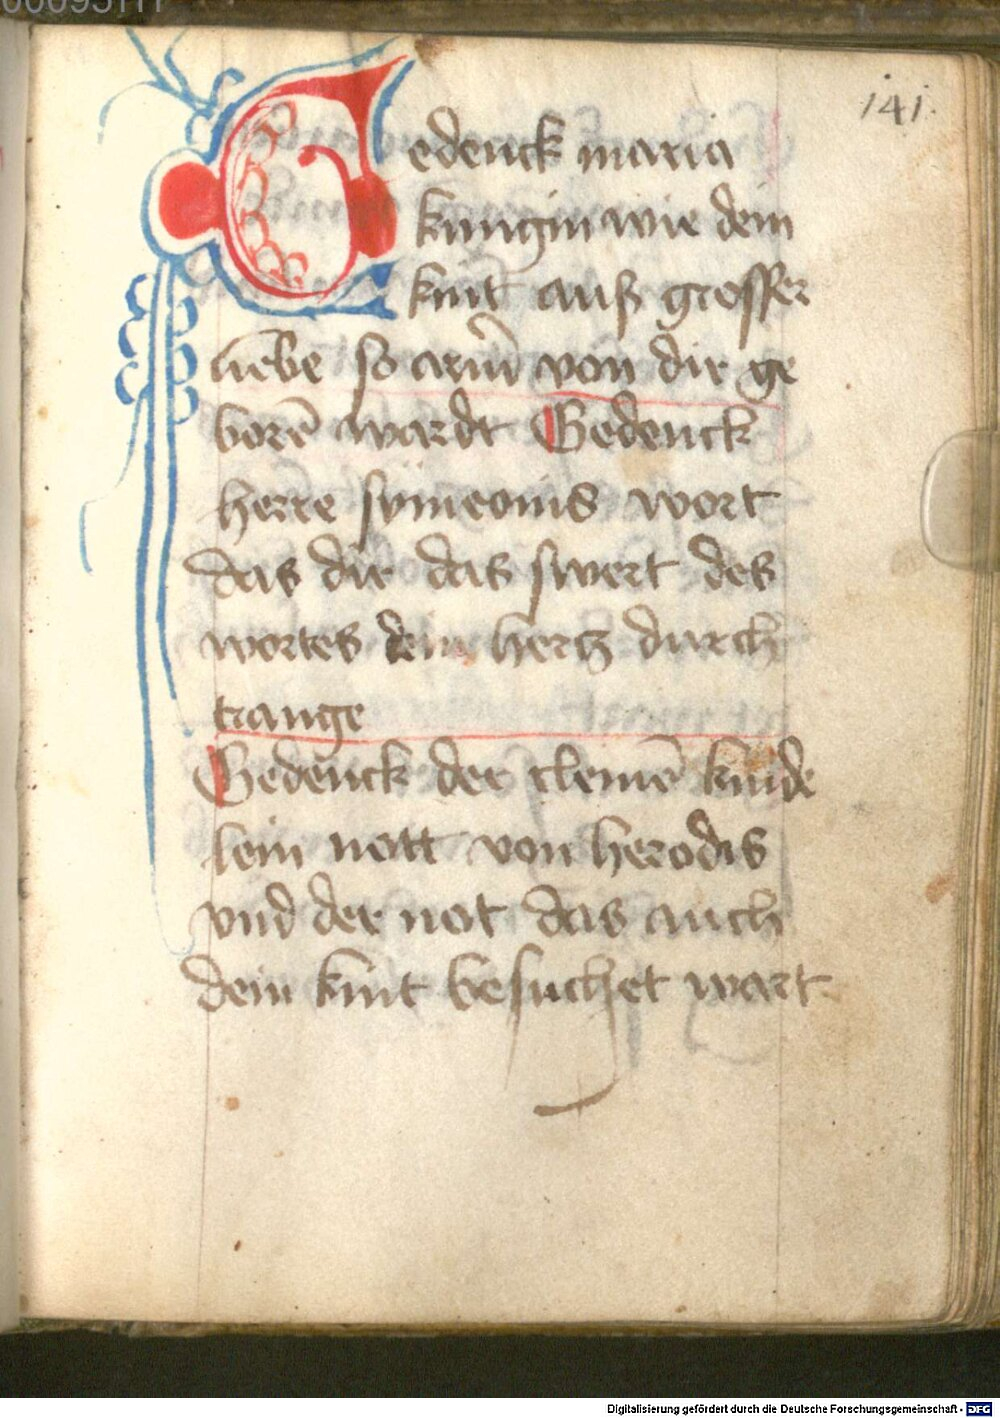 141.
Gedenck maria
kungin wie dein
kint auß grosser
liebe so arm von dir ge
borē wardt Gedenck
herre symeonis wort
das dir das swert des
wortes dein hertz durch
trange
Gedenck der clemē kinde
lein nott von herodis
vnd der not das auch
dein kint besuchet wart
Digitalisierung gefördert durch die Deutsche Forschungsgemeinschaft - DFG